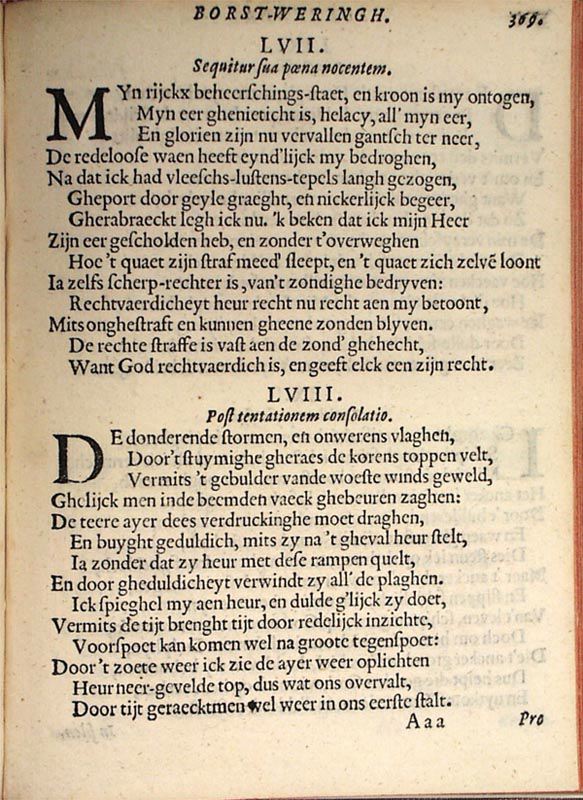 BORST-WERINGH. 369.
LVII.
Sequitur sua pœna nocentem.
MYn rijckx beheerschings-staet, en kroon is my ontogen,
Myn eer ghenieticht is, helacy, all' myn eer,
En glorien zijn nu vervallen gantsch ter neer,
De redeloose waen heeft eynd'lijck my bedroghen,
Na dat ick had vleeschs-lustens-tepels langh gezogen,
Gheport door geyle graeght, en nickerlijck begeer,
Gherabraeckt legh ick nu. 'k beken dat ick mijn Heer
Zijn eer gescholden heb, en zonder t'overweghen
Hoe 't quaet zijn straf meed' sleept, en 't quaet zich zelvē loont
Ia zelfs scherp-rechter is, van't zondighe bedryven:
Rechtvaerdicheyt heur recht nu recht aen my betoont,
Mits onghestraft en kunnen gheene zonden blyven.
De rechte straffe is vast aen de zond' ghehecht,
Want God rechtvaerdich is, en geeft elck een zijn recht.
LVIII.
Post tentationem consolatio.
DE donderende stormen, en onwerens vlaghen,
Door't stuymighe gheraes de korens toppen velt,
Vermits 't gebulder vande woeste winds geweld,
Ghelijck men inde beemden vaeck ghebeuren zaghen:
De teere ayer dees verdruckinghe moet draghen,
En buyght geduldich, mits zy na 't gheval heur stelt,
Ia zonder dat zy heur met dese rampen quelt,
En door gheduldicheyt verwindt zy all' de plaghen.
Ick spieghel my aen heur, en dulde g'lijck zy doet,
Vermits de tijt brenght tijt door redelijck inzichte,
Voorspoet kan komen wel na groote tegenspoet:
Door 't zoete weer ick zie de ayer weer oplichten
Heur neer-gevelde top, dus wat ons overvalt,
Door tijt geraecktmen wel weer in ons eerste stalt.
Aaa Pro